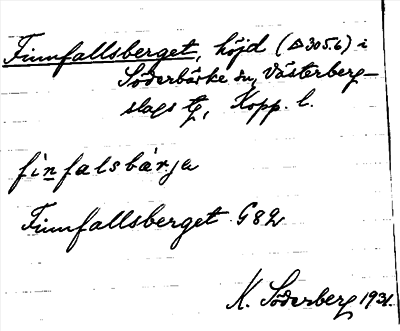 Finnfallsberget, höjd (△305.6) i
Söderbärke sn, Västerberg-
slags tg, Kopp. l.
finfalsbärja
Finnfallsberget G82
K. Söderberg 1931.